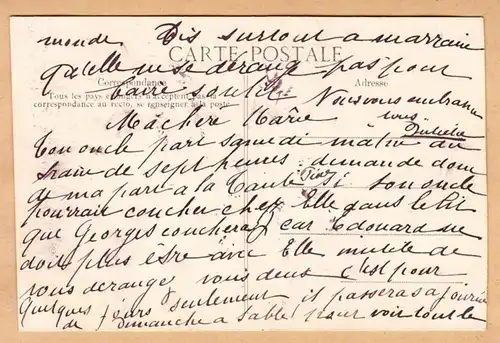 monde Dis surtout a marraine
CARTE POSTALE
qu'elle ne se dérange pas pour
Correspondance
Adresse
Tous les pays étrangers n'acceptent pas la
correspondance au recto, se renseigner à la poste
faire
Nous vous embrassons
Ma chere Marie
Juliette
Ton oncle part samedi matin au
train de sept heures demande donc
de ma part a la Tante si ton oncle
pourrait coucher chez Elle dans le lit
que Georges couchera car Edouard ne
doit plus être avec Elle inutile de
vous deranger vous deux c'est pour
quelques jours seulement il passeras a journée
de dimanche a Sable pour voir tout le